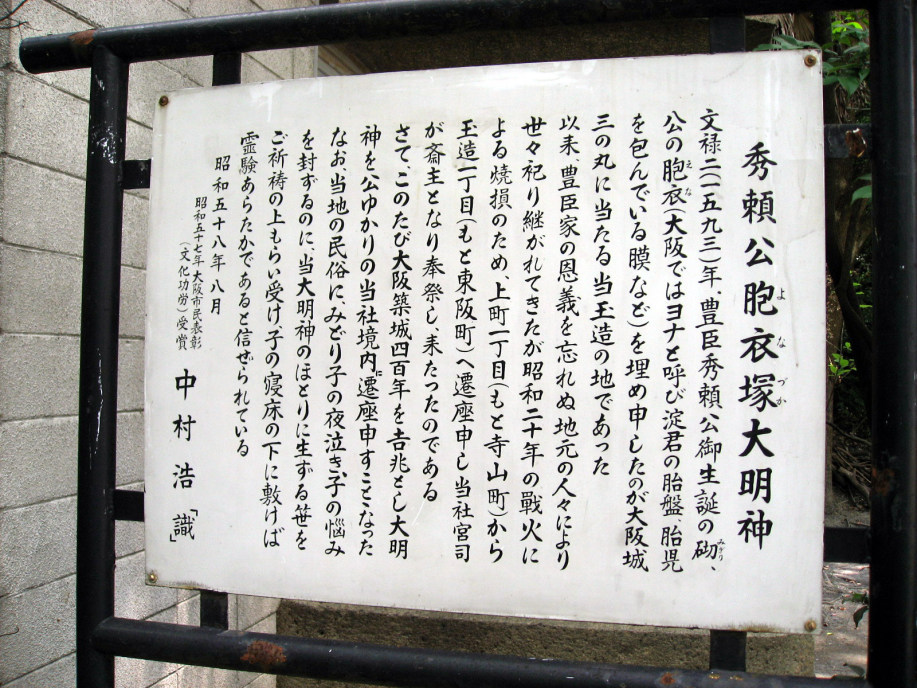 秀頼公胞衣塚大明神
よなづか
文禄二(一五九三)年、豊臣秀頼公御生誕の砌、
みぎり
公の胞衣(大阪ではヨナと呼び淀君の胎盤、胎児
えな
を包んでいる膜など)を埋め申したのが大阪城
三の丸に当たる当玉造の地であった
以来、豊臣家の恩義を忘れぬ地元の人々により
世々祀り継がれてきたが昭和二十年の戦火に
よる焼損のため、上町一丁目(もと寺山町)から
玉造一丁目(もと東阪町)へ遷座申し当社宮司
が斎主となり奉祭し、来たったのである
さて、このたび大阪築城四百年を吉兆とし大明
神を公ゆかりの当社境内に遷座申すこととなった
なお、当地の民俗に、みどり子の夜泣き、子の悩み
を封ずるのに、当大明神のほとりに生ずる笹を
ご祈祷の上もらい受け、子の寝床の下に敷けば
霊験あらたかであると信ぜられている
昭和五十八年八月
昭和五十七年大阪市民表彰
(文化功労)受賞
中村浩「識」